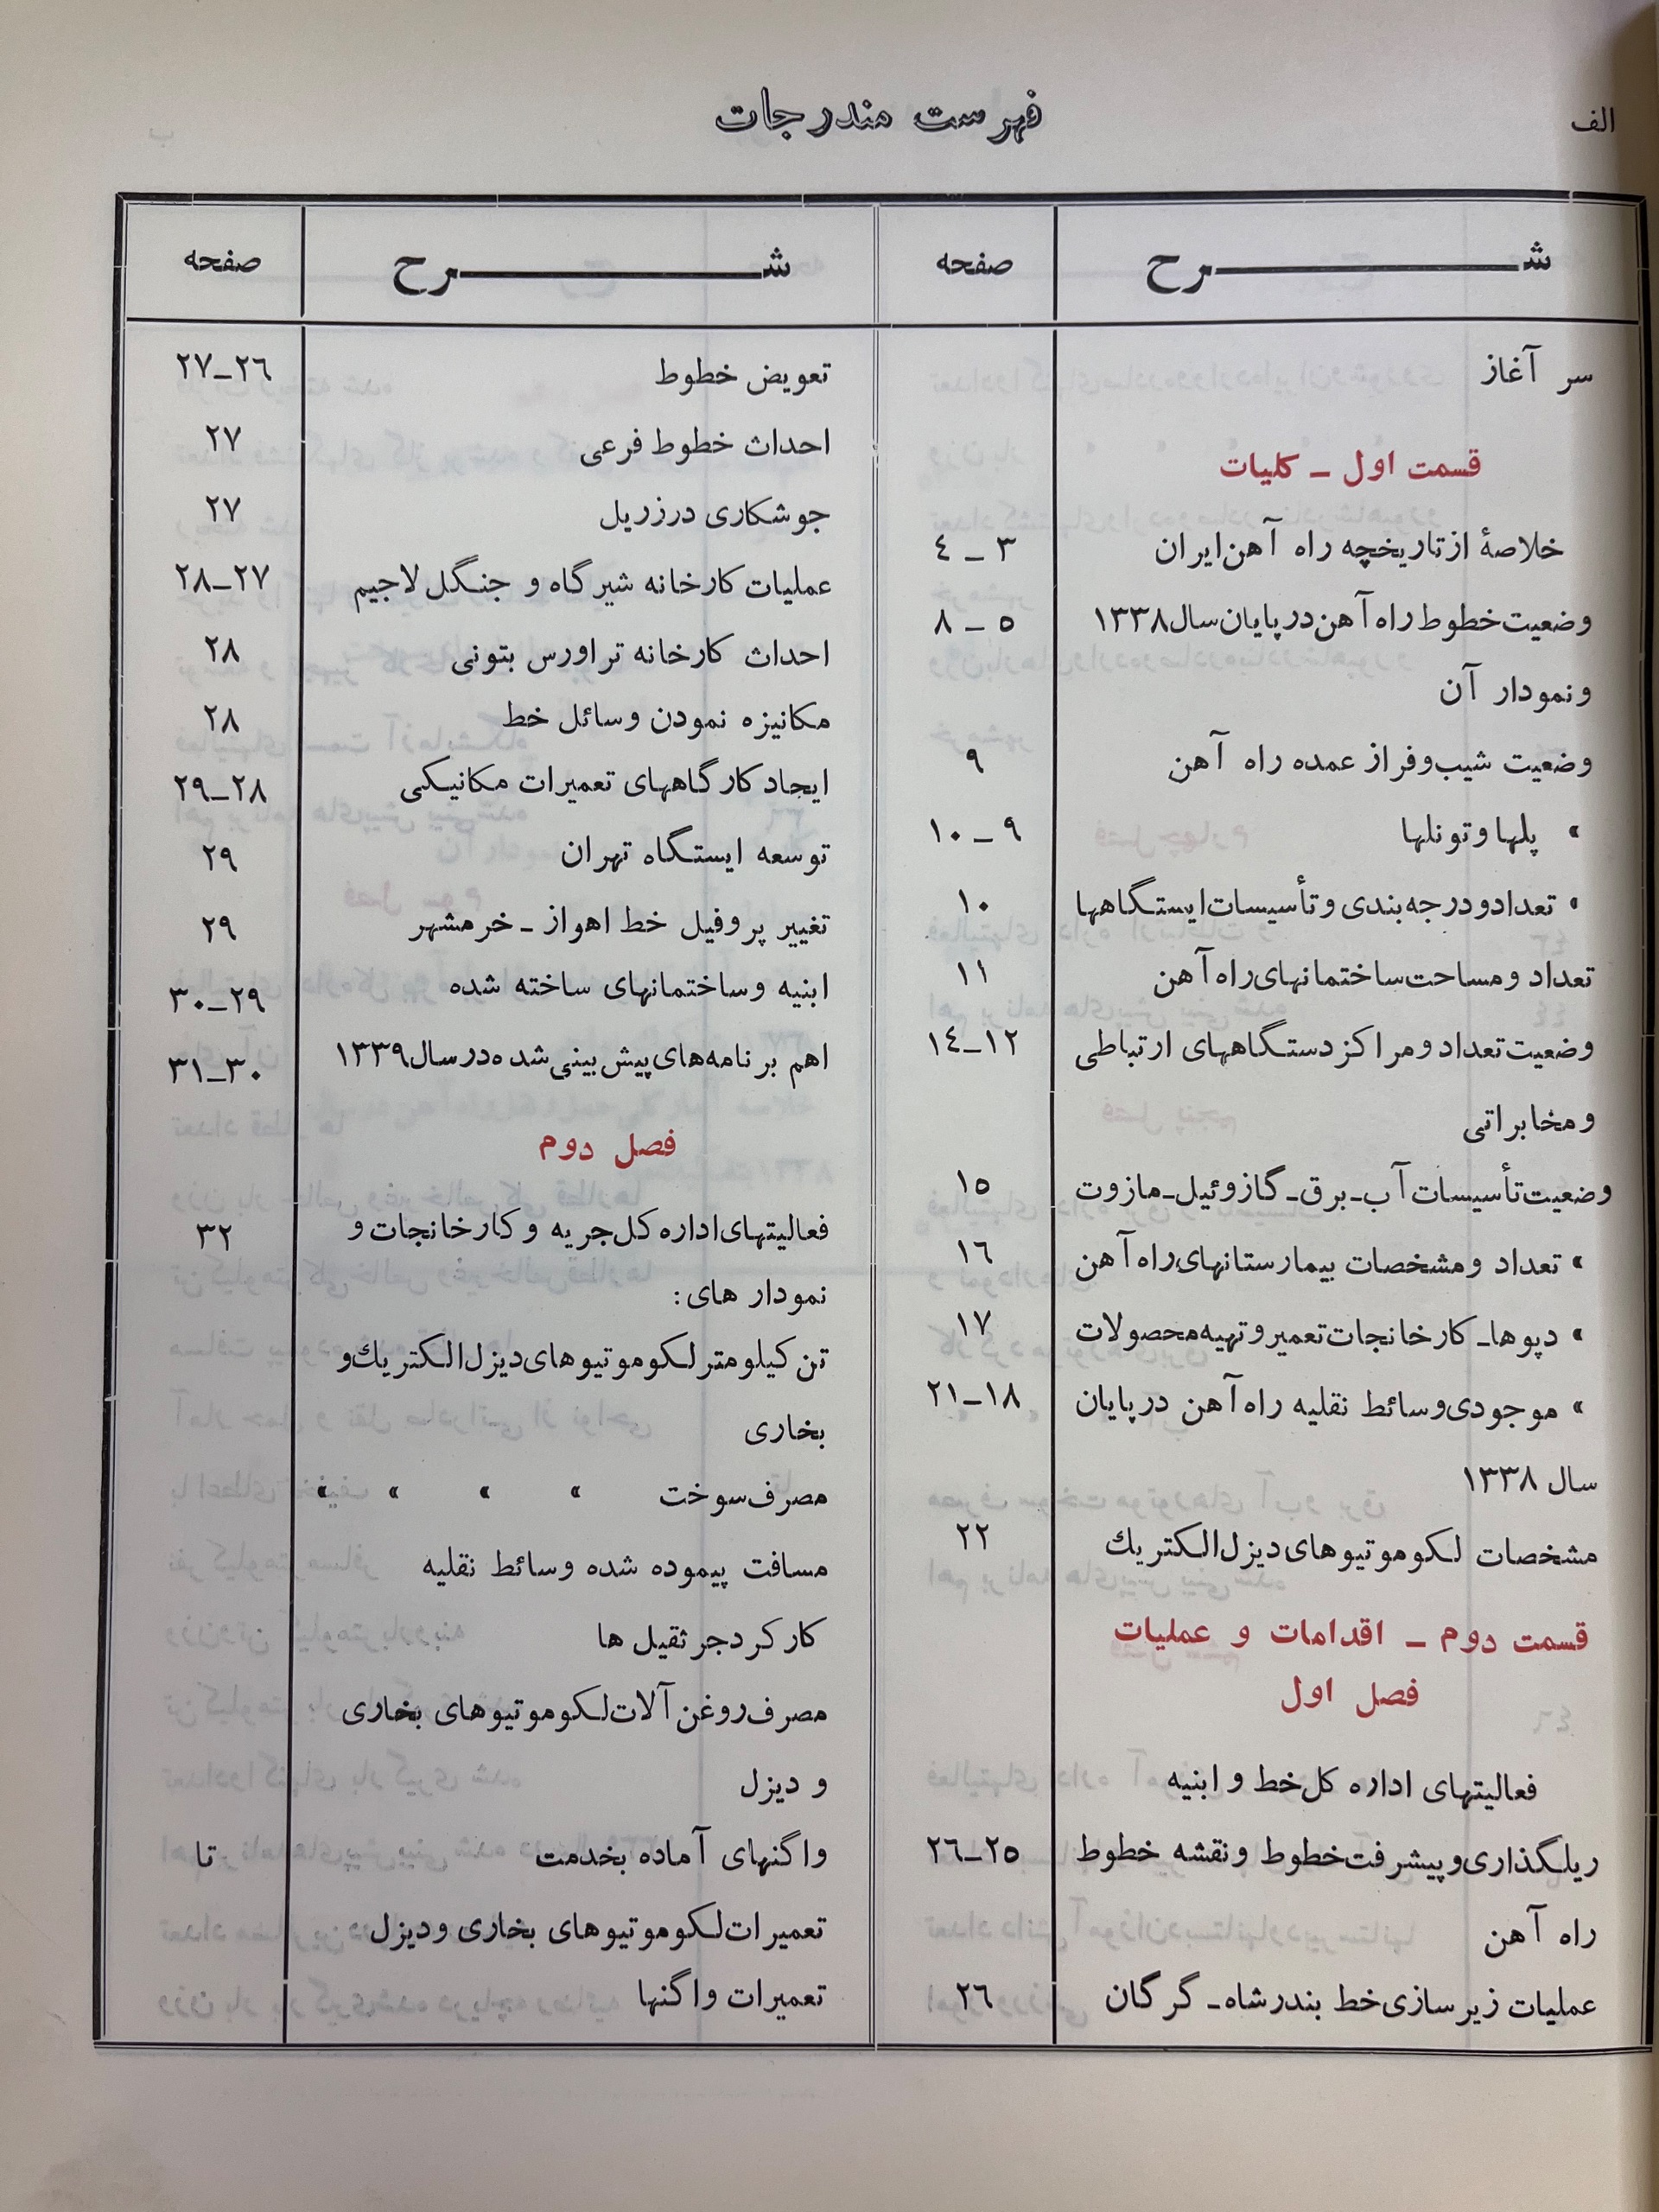 الف
فهرست مندرجات
شرح صفحه
سر آغاز
قسمت اول ـ کلیات
خلاصهٔ از تاریخچه راه آهن ایران ۳ ـ ٤
وضعیت خطوط راه آهن در پایان سال ۱۳۳۸ ۵ ـ ۸
و نمودار آن
وضعیت شیب و فراز عمده راه آهن ۹
» پلها و تونلها ۹ ـ ۱۰
» تعداد و درجه بندی و تأسیسات ایستگاهها ۱۰
تعداد و مساحت ساختمانهای راه آهن ۱۱
وضعیت تعداد و مراکز دستگاههای ارتباطی ۱۲ـ۱٤
و مخابراتی
وضعیت تأسیسات آب ـ برق ـ گازوئیل ـ مازوت ۱۵
» تعداد و مشخصات بیمارستانهای راه آهن ۱٦
» دپوها ـ کارخانجات تعمیر و تهیه محصولات ۱۷
» موجودی وسائط نقلیه راه آهن در پایان ۱۸ـ۲۱
سال ۱۳۳۸
مشخصات لکوموتیوهای دیزل الکتریك ۲۲
قسمت دوم ـ اقدامات و عملیات
فصل اول
فعالیتهای اداره کل خط و ابنیه
ریلگذاری و پیشرفت خطوط و نقشه خطوط ۲۵ـ۲٦
راه آهن
عملیات زیرسازی خط بندرشاه ـ گرگان ۲٦
شرح صفحه
تعویض خطوط ۲٦ـ۲۷
احداث خطوط فرعی ۲۷
جوشکاری درز ریل ۲۷
عملیات کارخانه شیرگاه و جنگل لاجیم ۲۷ـ۲۸
احداث کارخانه تراورس بتونی ۲۸
مکانیزه نمودن وسائل خط ۲۸
ایجاد کارگاههای تعمیرات مکانیکی ۲۸ـ۲۹
توسعه ایستگاه تهران ۲۹
تغییر پروفیل خط اهواز ـ خرمشهر ۲۹
ابنیه و ساختمانهای ساخته شده ۲۹ـ۳۰
اهم برنامه‌های پیش بینی شده در سال ۱۳۳۹ ۳۰ـ۳۱
فصل دوم
فعالیتهای اداره کل جریه و کارخانجات و ۳۲
نمودار های:
تن کیلومتر لکوموتیوهای دیزل الکتریك و
بخاری
مصرف سوخت » » » »
مسافت پیموده شده وسائط نقلیه
کار کرد جرثقیل ها
مصرف روغن آلات لکوموتیوهای بخاری
و دیزل
واگنهای آماده بخدمت تا
تعمیرات لکوموتیوهای بخاری و دیزل
تعمیرات واگنها